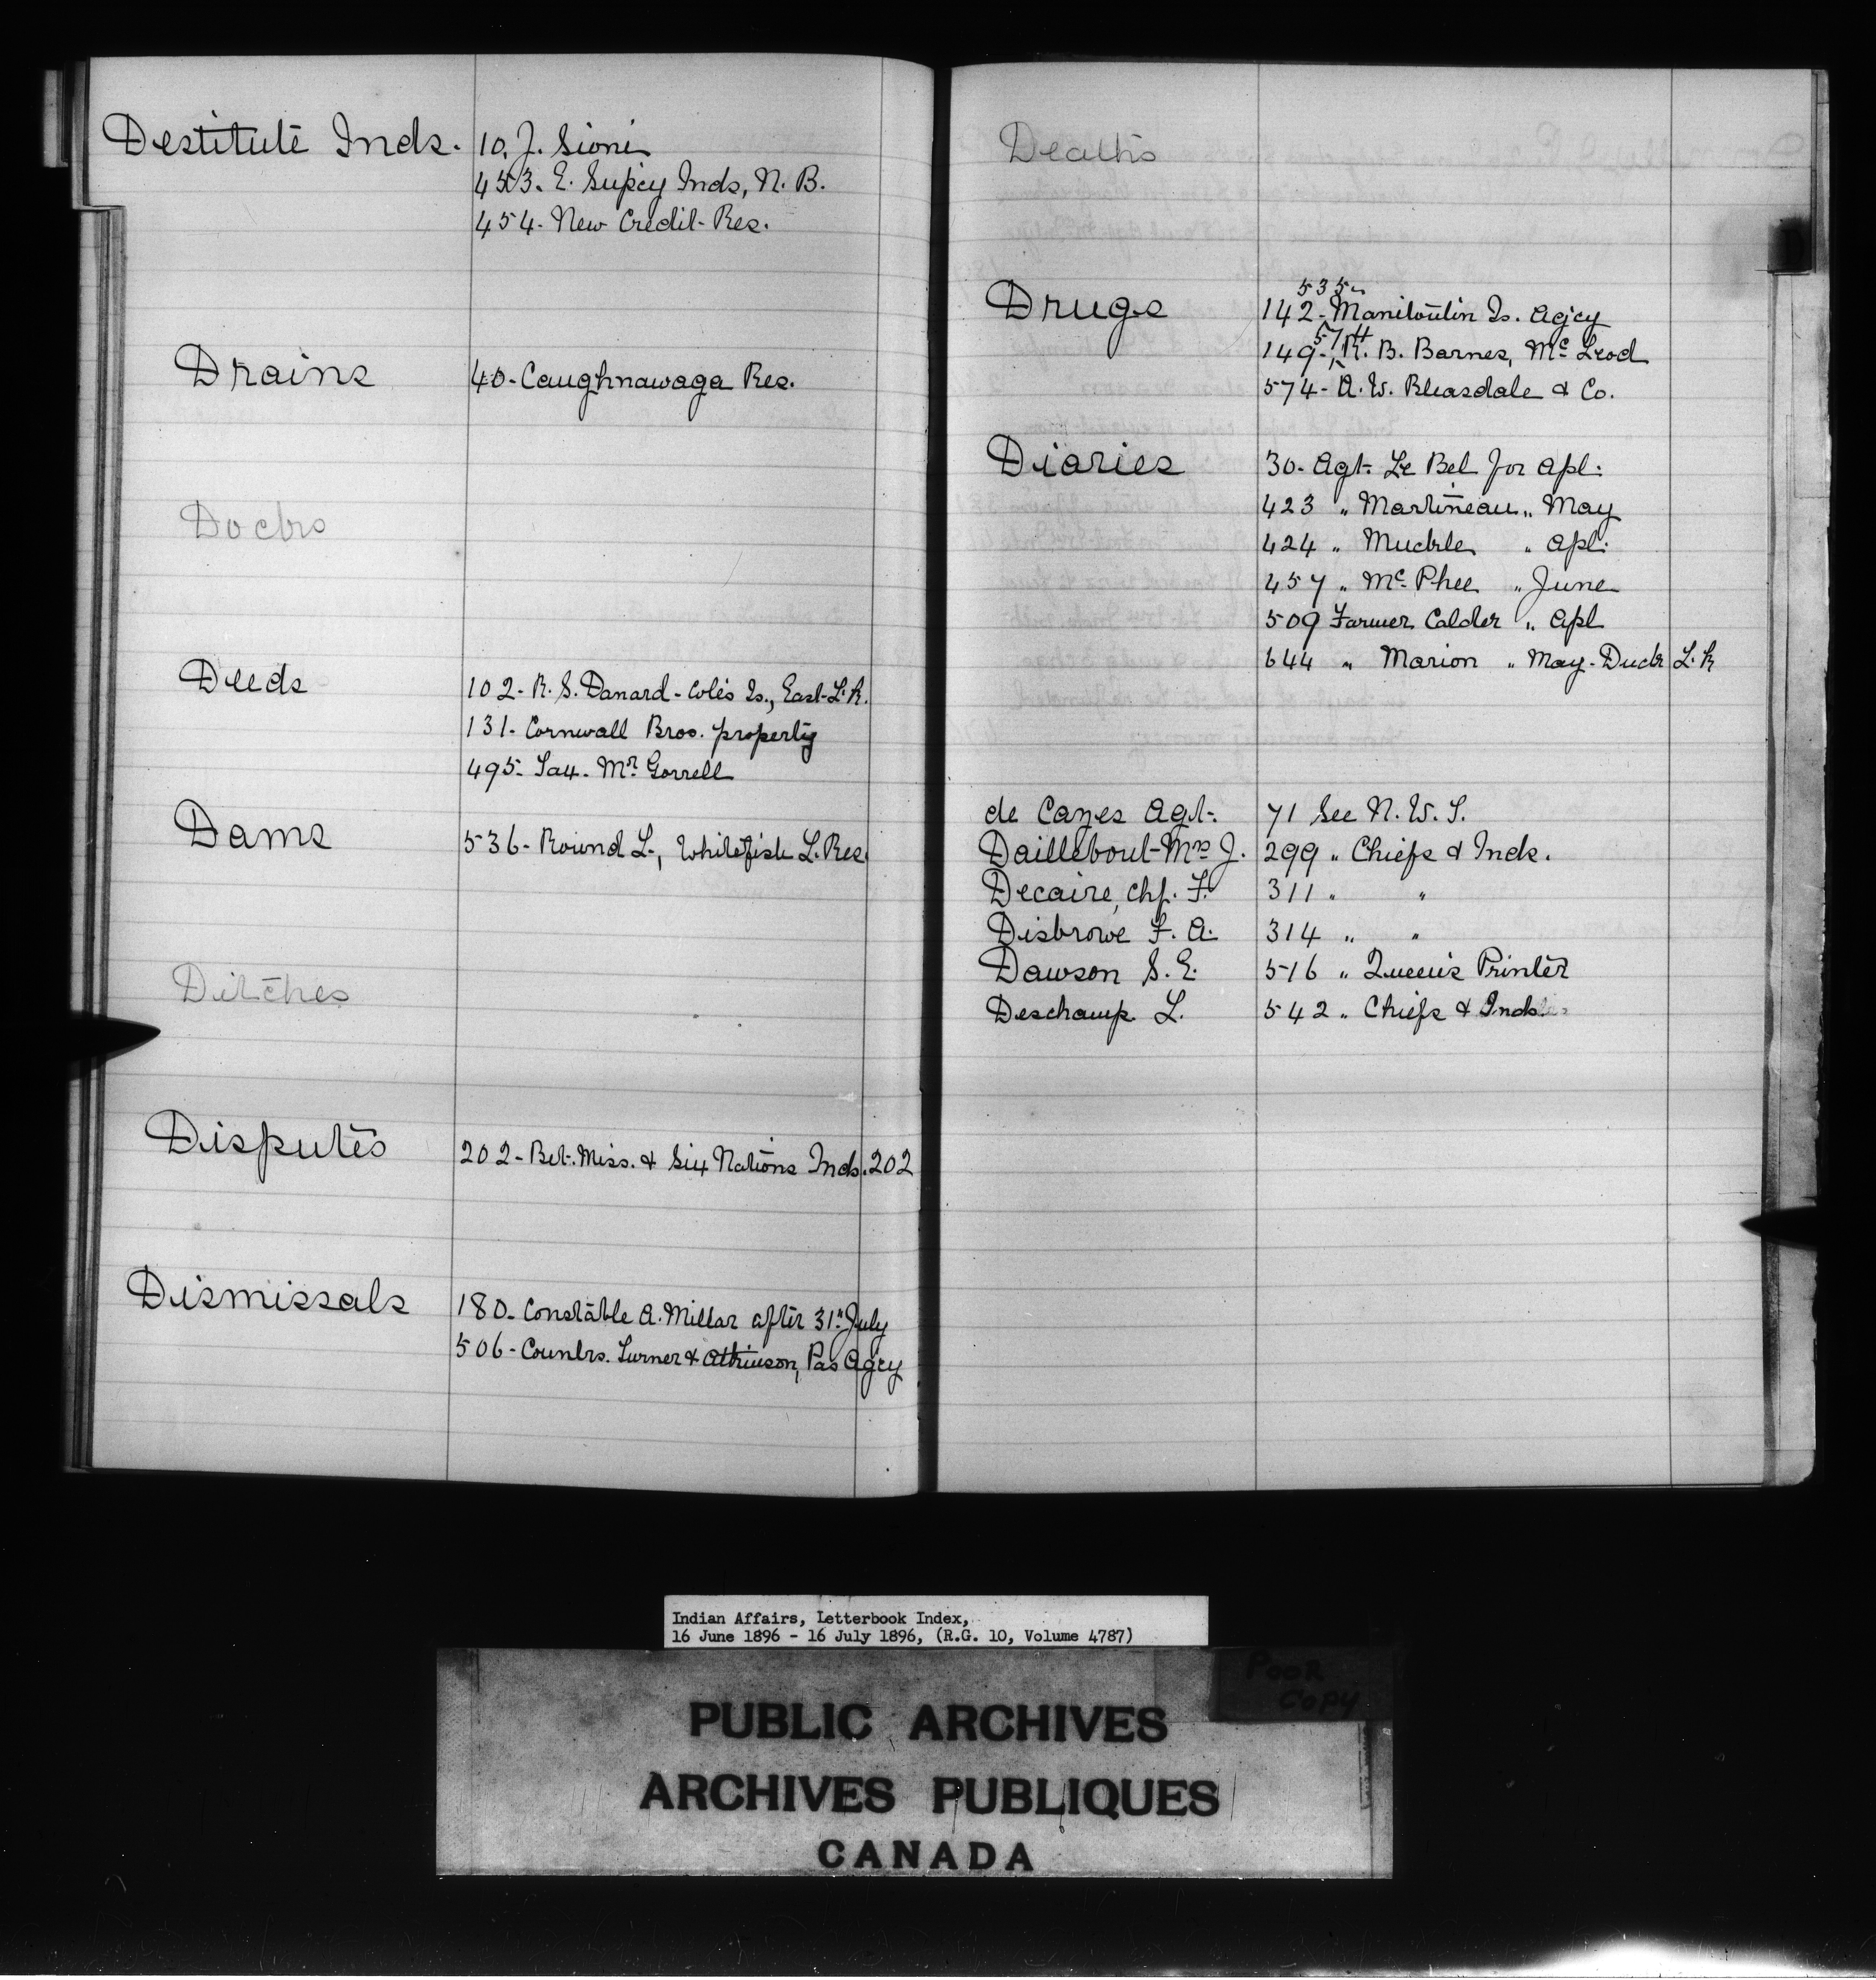 Destitute Inds.
10. J. Sioni
453. E. Supcy Inds, N. B.
454- New Credit Res.
Drains
40- Caughnawaga Res.
Docks
Deeds
102- R. S. Danard - Coles Is., East L. R.
131- Cornwall Bros. property
495- Sax. Mr. Gorrell
Dams
536- Round L., Whitefish L. Res.
Ditches
Disputes
202- Bet. Miss. & Six Nations Inds. 202
Dismissals
180- Constable A. Millar after 31st July
506- Counlrs. Turner & Atkinson, Pas Agcy
Deaths
Drugs
535-
142- Manitoulin Is. Agcy
574
149- R. B. Barnes, McLeod
574- A. W. Bleasdale & Co.
Diaries
30- Agt. Le Bel for Apl.
423 " Martineau " May
424 " Muckle " Apl.
457 " McPhee " June
509 Farmer Calder " Apl
644 " Marion " May - Duck L. R
de Cazes Agt.
71 See N. W. T.
Daillebout Mrs J.
299 " Chiefs & Inds.
Decaire, Chf. F.
311 " "
Disbrowe F. A.
314 " "
Dawson S. E.
516 " Queen's Printer
Deschamp L.
542 " Chiefs & Inds
Indian Affairs, Letterbook Index,
16 June 1896 - 16 July 1896, (R.G. 10, Volume 4787)
POOR
COPY
PUBLIC ARCHIVES
ARCHIVES PUBLIQUES
CANADA